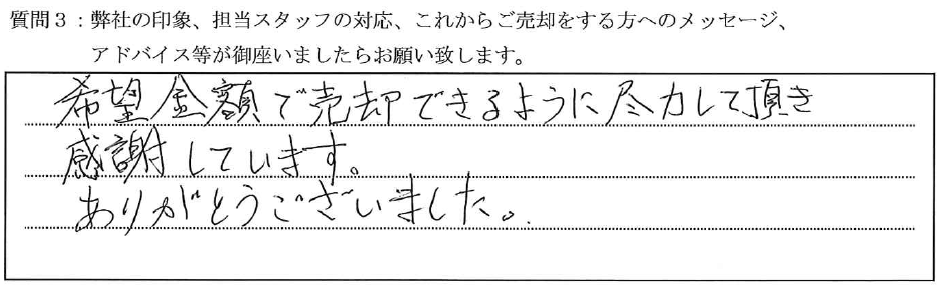 質問３：弊社の印象、担当スタッフの対応、これからご売却をする方へのメッセージ、
アドバイス等が御座いましたらお願い致します。
希望金額で売却できるように尽力して頂き
感謝しています。
ありがとうございました。